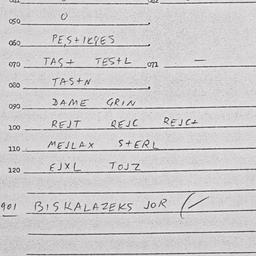 050 0
060 PESTICYES
070 TAST TESTL 071 —
080 TASTN
090 DAME GRIN
100 REJT REJC REJCT
110 MEJLAX STERL
120 EJXL TOJZ
901 BISKALAZEKS JOR